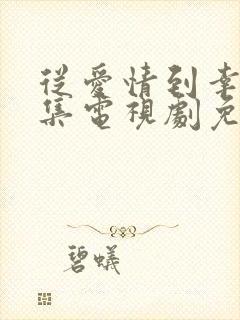 從愛情到幸
集電視劇免
碧蟻